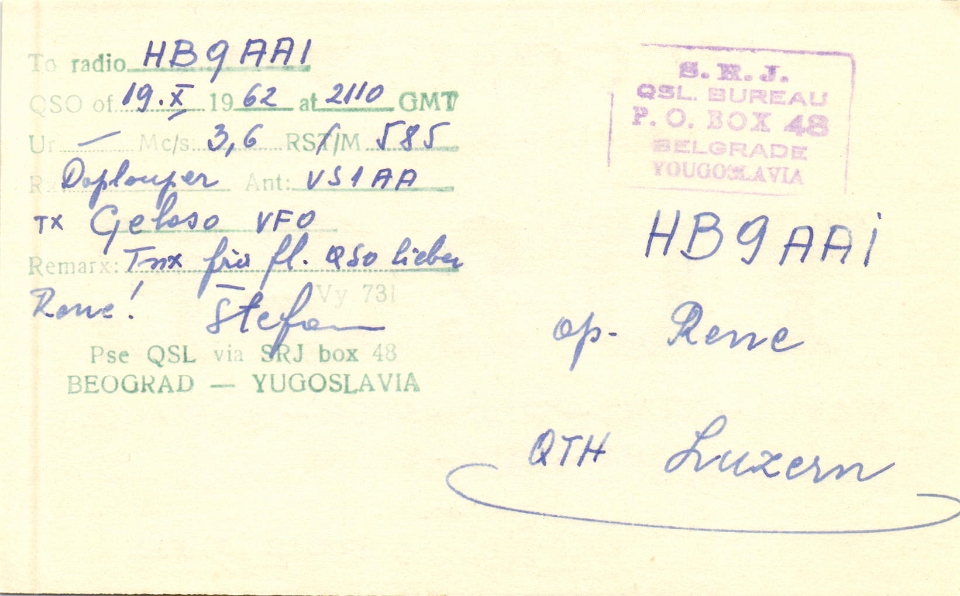 To radio HB9AAI
QSO of 19.X 1962 at 2110 GMT
Ur — Mc/s 3,6 RST/M 585
Rx Doplouper Ant: VS1AA
TX Geloso VFO
Remarx: Tnx für fl. QSO lieber
Rene! Štefan
Vy 73!
Pse QSL via SRJ box 48
BEOGRAD — YUGOSLAVIA
S. R. J.
QSL. BUREAU
P. O. BOX 48
BELGRADE
YOUGOSLAVIA
HB9AAi
op- Rene
QTH Luzern